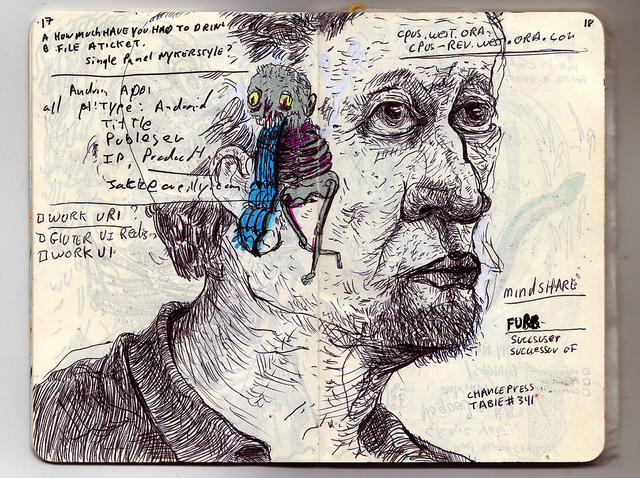 17
A HOW MUCH HAVE YOU HAD TO DRINK
B FILE A TICKET.
Single Panel NYKERSTYLE?
Android APPI
all pl!Type: Android
Title
Publeser
ID, Product
WORK URI ?
UI
WORK UI
18
CPUS.WEST.ORA.
CPUS-REV.WEST.ORA.COM
mindSHARE
FURR
SUCCSUSER
SUCCESSOR OF
CHANCE PRESS
TABLE #341